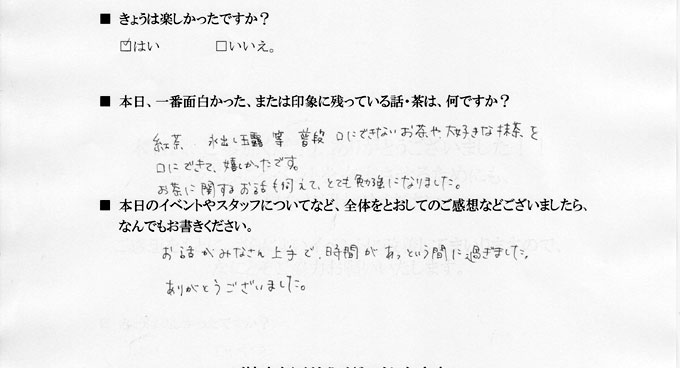 ■ きょうは楽しかったですか？
☑はい　□いいえ。
■ 本日、一番面白かった、または印象に残っている話・茶は、何ですか？
紅茶、氷出し玉露 等 普段 口にできないお茶や大好きな抹茶を
口にできて、嬉しかったです。
お茶に関するお話も伺えて、とても勉強になりました。
■ 本日のイベントやスタッフについてなど、全体をとおしてのご感想などございましたら、
なんでもお書きください。
お話がみなさん上手で、時間があっという間に過ぎました。
ありがとうございました。